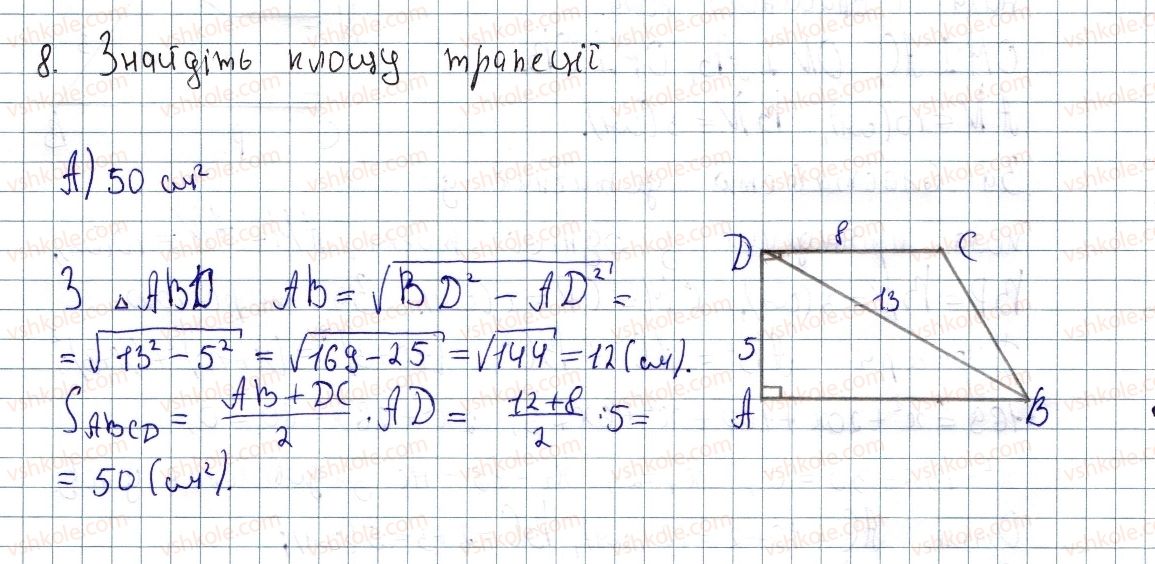 8. Знайдіть площу трапеції
А) 50 см²
З △ABD AB = √(BD² − AD²) =
= √(13² − 5²) = √(169 − 25) = √144 = 12 (см).
S_ABCD = (AB + DC)/2 · AD = (12 + 8)/2 · 5 =
= 50 (см²).
D 8 C
13
5
A B
vshkole.com